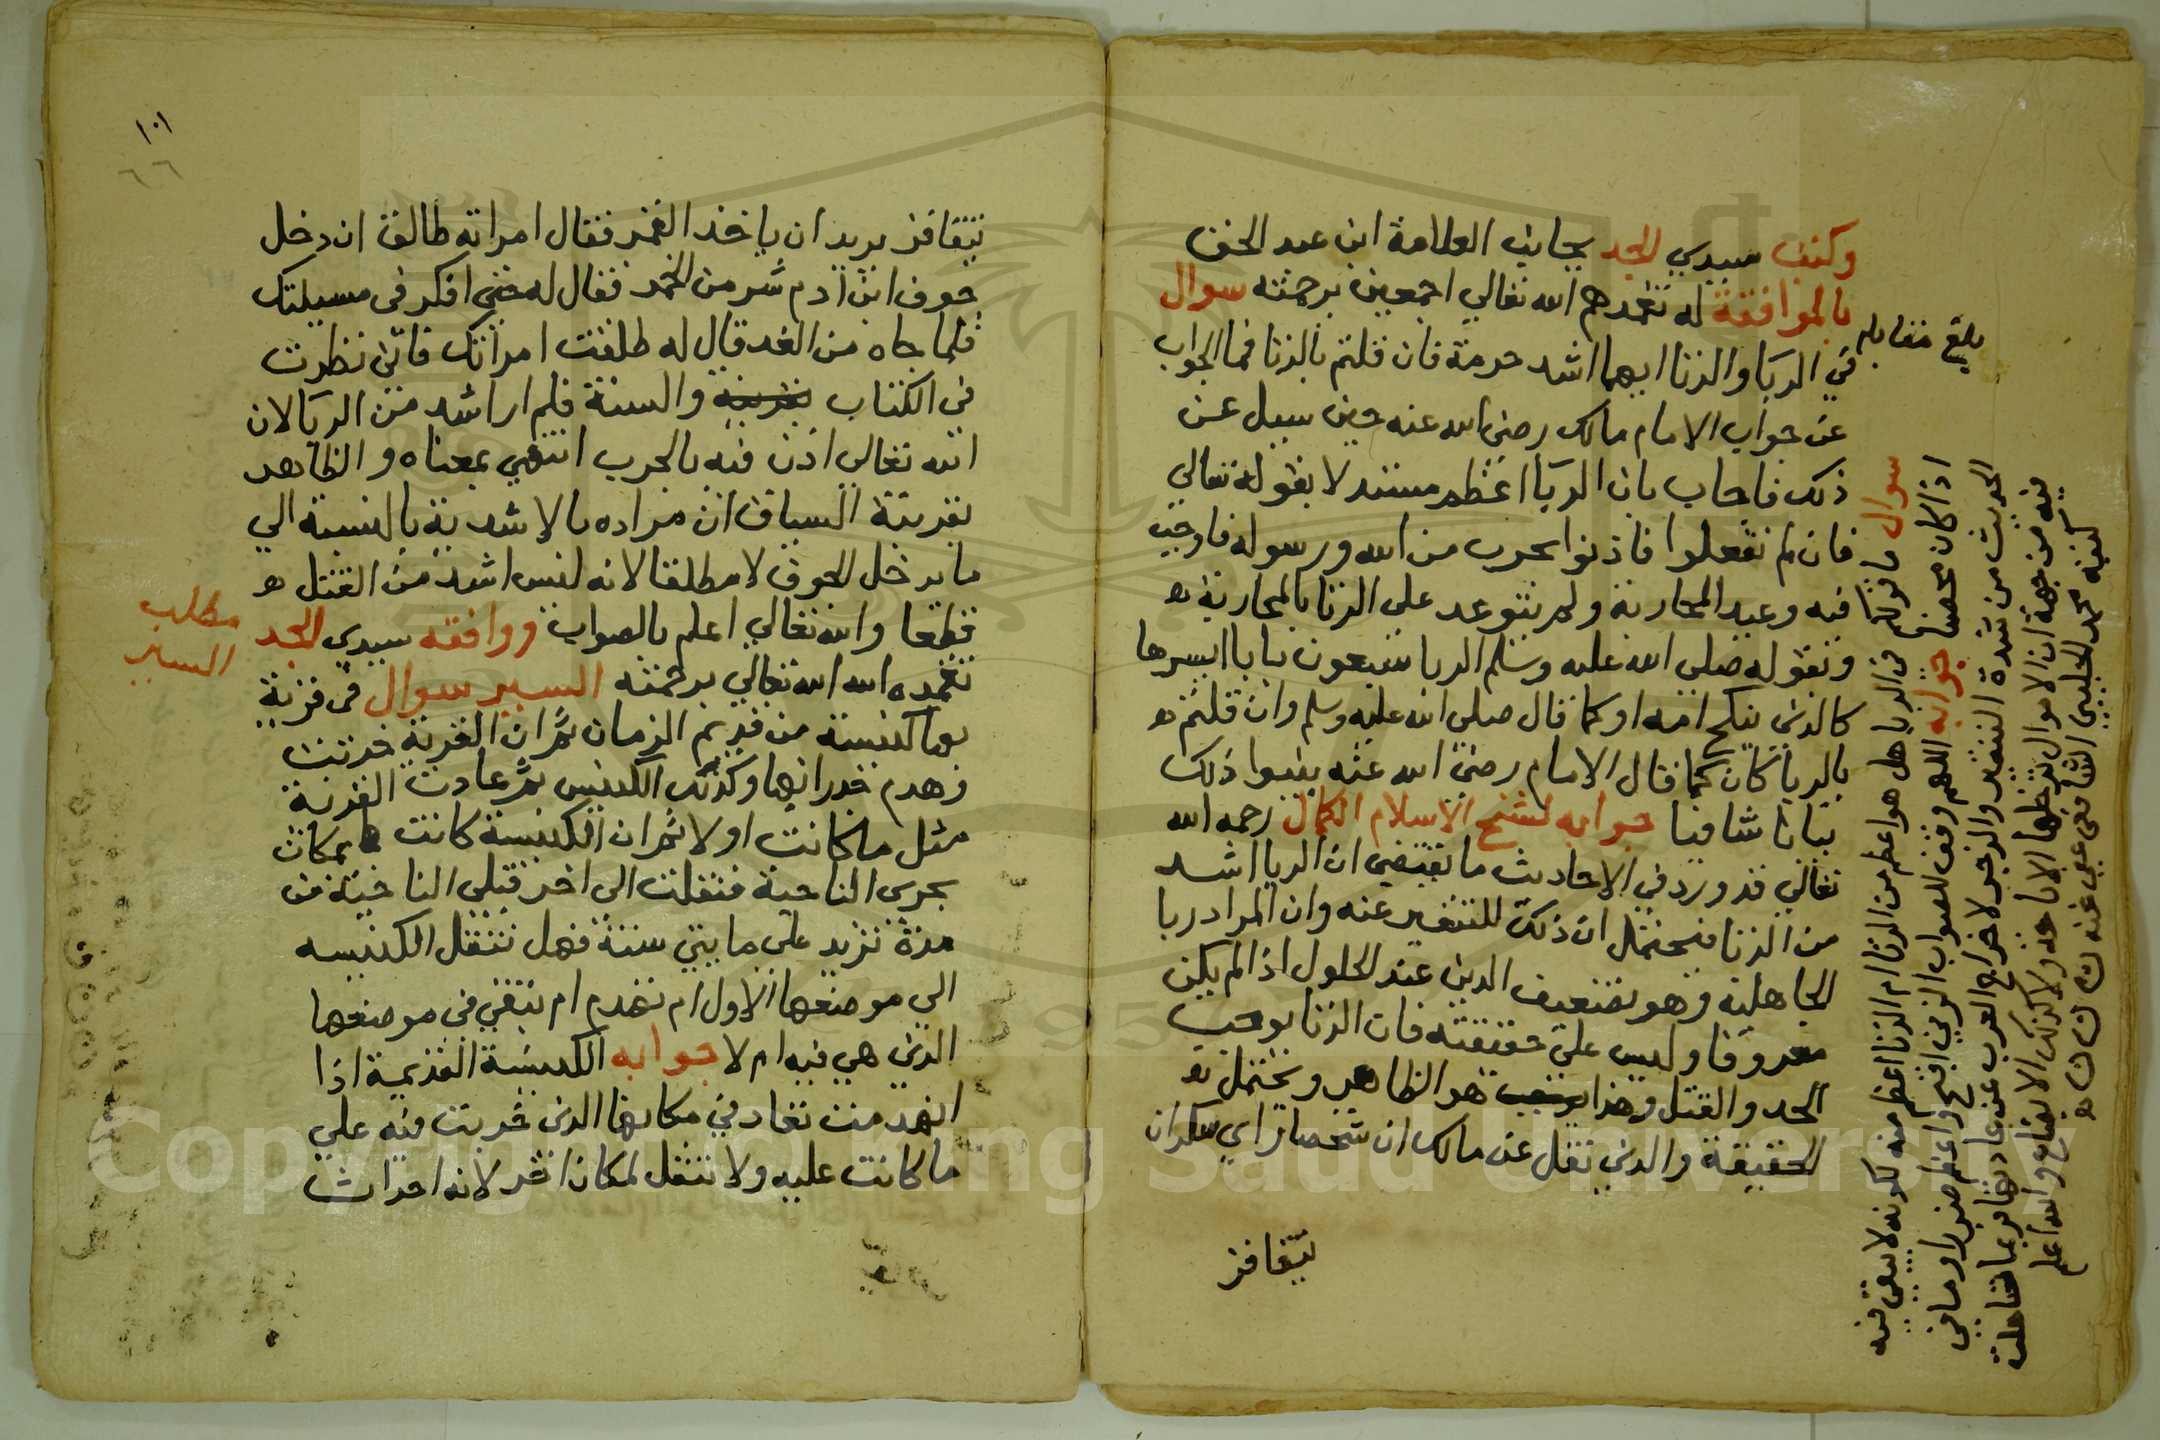 وكتب سيدي الجد بجانب العلامة ابن عبد الحق
بالموافقة له تغمدهم الله تعالي اجمعين برحمته سوال
في الربا والزنا ايهما اشد حرمة فان قلتم بالزنا فما الجواب
عن جواب الامام مالك رضي الله عنه حين سيل عن
ذلك فاجاب بان الربا اعظم مستدلا بقوله تعالي
فان لم تفعلوا فاذنوا بحرب من الله ورسوله فاوجب
فيه وعيد المحاربة ولم يتوعد علي الزنا بالمحاربة
وبقوله صلي الله عليه وسلم الربا سبعون بابا ايسرها
كالذي ينكح امه او كما قال صلي الله عليه وسلم وان قلتم
بالربا كان كما قال الامام رضي الله عنه بينوا ذلك
بيانا شافيا جوابه لشيخ الاسلام الكمال رحمه الله
تعالي قد ورد في الاحاديث ما يقتضي ان الربا اشد
من الزنا فيحتمل ان ذلك للتنفير عنه وان المراد ربا
الجاهلية وهو تضعيف الدين عند الحلول اذا لم يكن
معروفا وليس علي حقيقته فان الزنا يوجب
الحد والقتل وهذا هو الظاهر ويحتمل
الحقيقة والذي نقل عن مالك ان شخصا راي سكران
يتقافز
بلغ مقابله
سوال ما قولكم في الربا هل هو اعظم من الزنا ام الزنا اعظم منه لكونه لا يبقي فيه
اذا كان محصنا جوابه اللهم وفق للصواب الزني اقبح واعظم ضررا وما في
الحديث من شدة التنفير والزجر لاخراج العرب عن عادتها بما تساهلت
فيه من جهة ان الاموال تدخلها الاباحة ولا كذلك الابضاع والله اعلم
كتبه محمد الشافعي عفي عنه
١٠١
٦٦
يتقافز يريد ان ياخذ القمر فقال امراته طالق ان دخل
جوف ابن ادم شر من الخمر فقال له حتي افكر في مسيلتك
فلما جاه من الغد قال له طلقت امراتك فاني نظرت
في الكتاب والسنة فلم ار اشد من الربا لان
الله تعالي اذن فيه بالحرب انتهي بمعناه والظاهر
بقرينة السياق ان مراده بالاشدية بالنسبة الي
ما يدخل الجوف لا مطلقا لانه ليس اشد من القتل
قطعا والله تعالي اعلم بالصواب ووافقه سيدي الجد
تغمده الله الله تعالي برحمته السير سوال في قرية
بها كنيسة من قديم الزمان ثم ان القرية خربت
وهدم جدرانها وكذلك الكنيس ثم عادت القرية
مثل ما كانت اولا ثم ان الكنيسة كانت بمكان
بحري الناحية فنقلت الي اخر قبلي الناحية من
مدة تزيد علي مايتي سنة فهل تنتقل الكنيسه
الي موضعها الاول ام تهدم ام تبقي في موضعها
الذي هي فيه ام لا جوابه الكنيسة القديمة اذا
انهدمت تعاد في مكانها الذي خربت فيه علي
ما كانت عليه ولا تنتقل لمكان اخر لانه احداث
مطلب
السير
Copyright © King Saud University